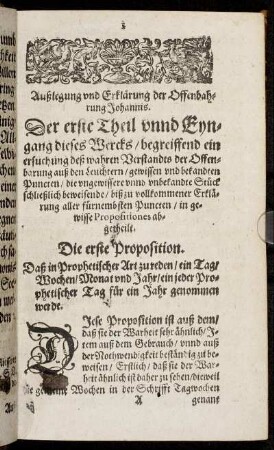 Außlegung vnd Erklärung der Offenbah-
rung Johannis.
Der erste Theil vnnd Eyn-
gang dieses Wercks / begreiffend ein
ersuchung deß wahren Verstandts der Offen-
barung auß den leuchtern / gewissen vnd bekandten
Puncten, die vngewissere vnnd vnbekandte Stück
schließlich beweisende / biß zu vollkommener Erklä-
rung aller fürnembsten Puncten / in ge-
wisse Propositiones ab-
getheilt.
Die erste Proposition.
Daß in Prophetischer Art zu reden / ein Tag /
Wochen / Monat vnd Jahr / ein jeder Pro-
phetischer Tag für ein Jahr genommen
werde.
DIese Proposition ist auß dem /
daß sie der Warheit sehr ähnlich / J-
tem auß dem Gebrauch / vnnd auß
der Nothwendigkeit beständig zu be-
weisen / Erstlich / daß sie der War-
heit ähnlich ist daher zu sehen / dieweil
die gemeine Wochen in der Schrifft Tagwochen
A genant